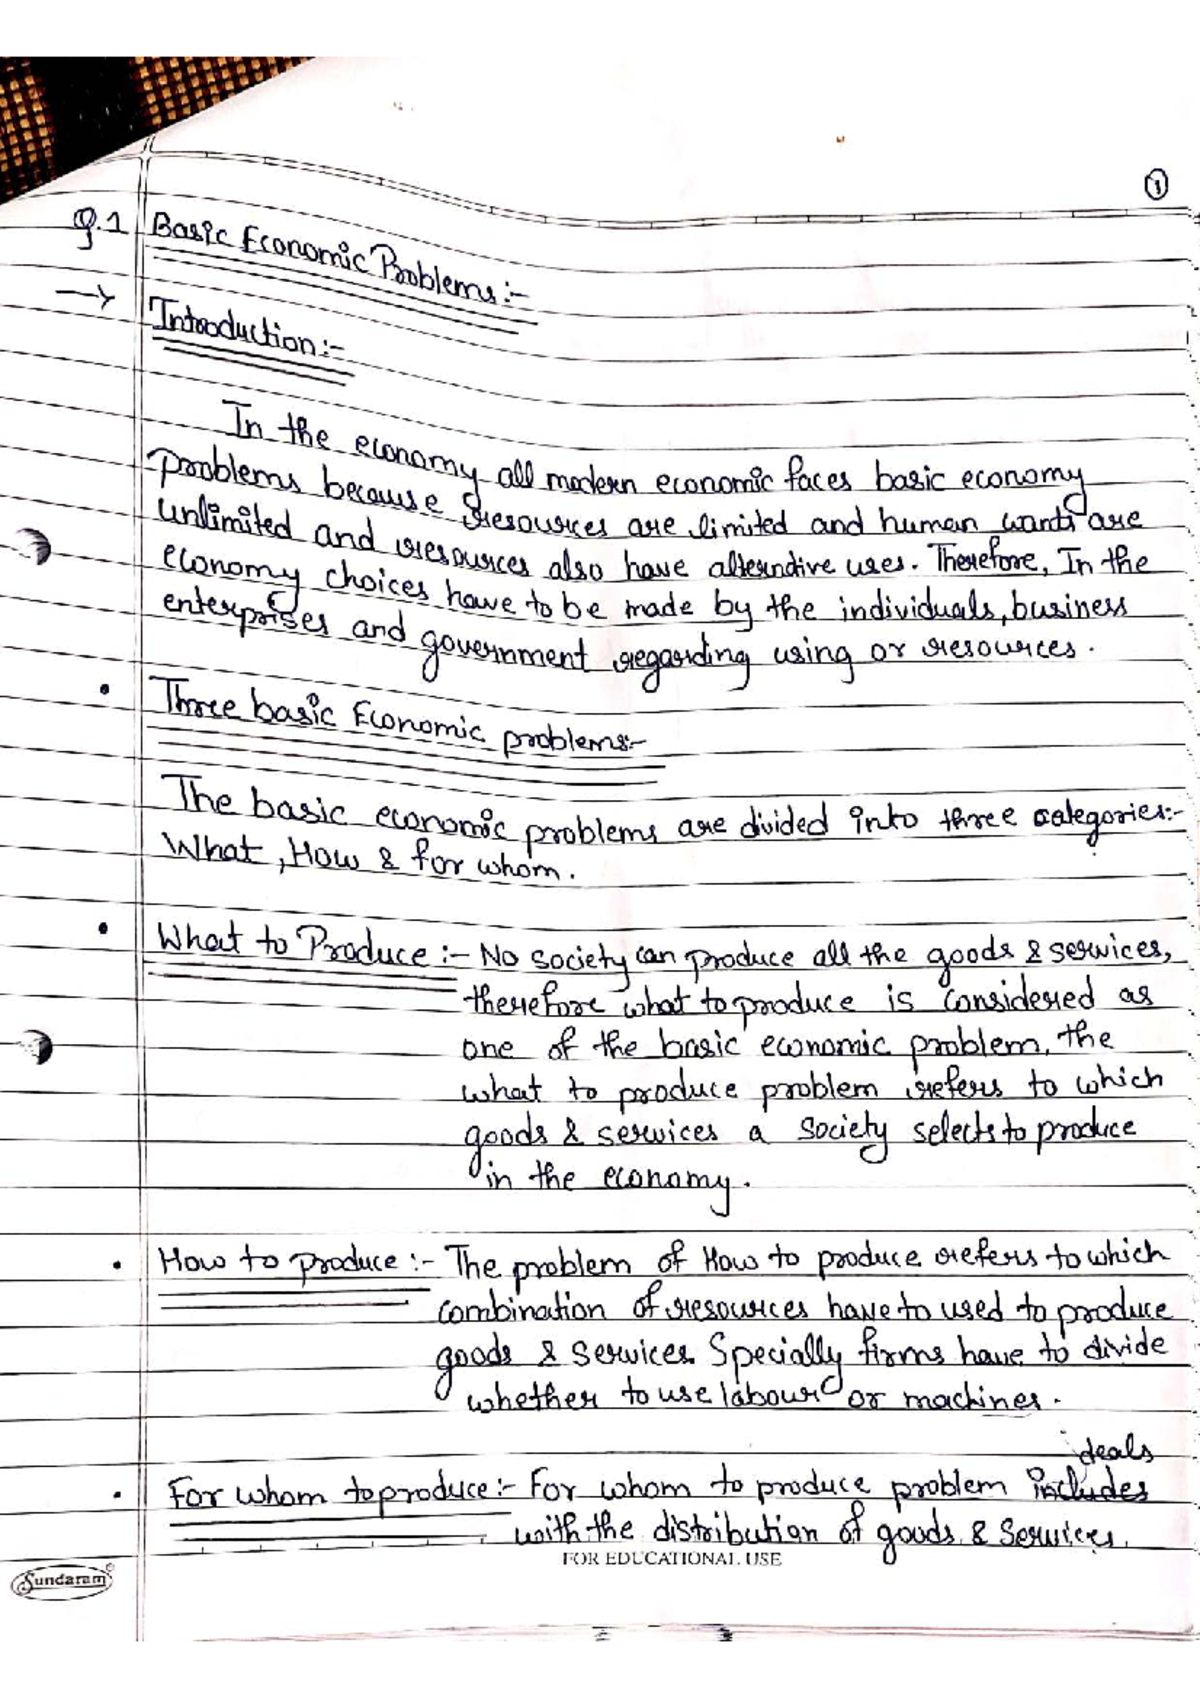 1
Q.1 Basic Economic Problems:-
→ Introduction:-
In the economy all modern economic faces basic economy
problems because resources are limited and human wants are
unlimited and resources also have alterndive uses. Therefore, In the
economy choices have to be made by the individuals, business
enterprises and government regarding using or resources.
• Three basic Economic problems:-
The basic economic problems are divided into three categories:-
What, How & for whom.
• What to Produce :- No society can produce all the goods & services,
therefore what to produce is considered as
one of the basic economic problem, the
what to produce problem refers to which
goods & services a society selects to produce
in the economy.
• How to produce :- The problem of How to produce refers to which
combination of resources have to used to produce
goods & services. Specially firms have to divide
whether to use labour or machines.
deals
• For whom to produce :- For whom to produce problem includes
with the distribution of goods & services.
FOR EDUCATIONAL USE
Sundaram